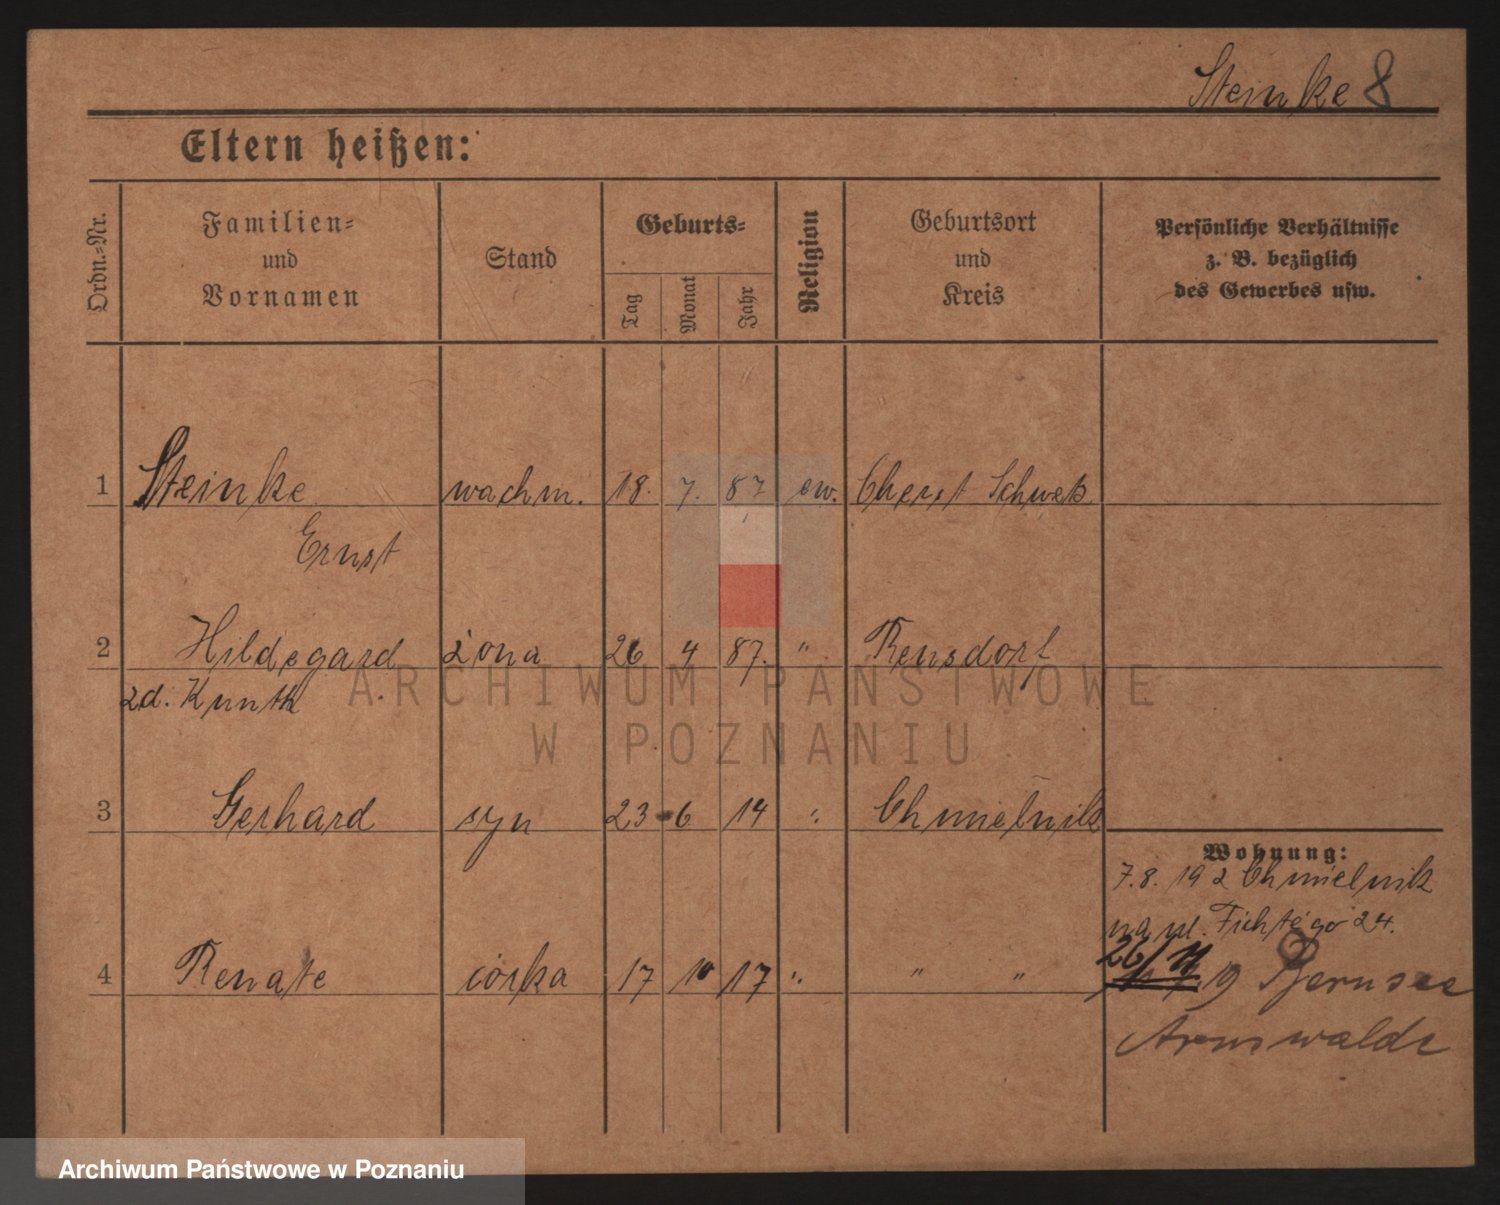 Steinke 8
Eltern heißen:
Ordn.-Nr.
Familien-
und
Vornamen
Stand
Geburts-
Tag
Monat
Jahr
Religion
Geburtsort
und
Kreis
Persönliche Verhältnisse
z. B. bezüglich
des Gewerbes usw.
1 Steinke wachm. 18. 7. 87 ew. Schwetz
Ernst
2 Hildegard żona 26 4 87. " Rensdorf
zd. Kunth
3 Gerhard syn 23 6 14 " Chmielnik
Wohnung:
7.8. 19 z Chmielnik
na ul. Fichtego 24.
4 Renate córka 17 10 17 " " "
26/11 19 Bernsee
Arnswalde
ARCHIWUM PAŃSTWOWE
W POZNANIU
Archiwum Państwowe w Poznaniu